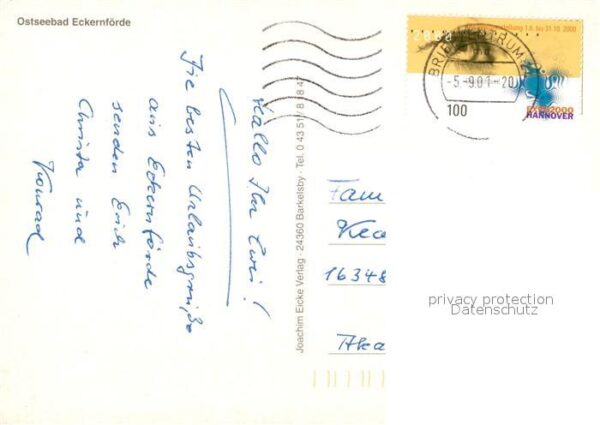 Ostseebad Eckernförde
Hallo Ihr Zwei!
Die besten Urlaubsgrüße
aus Eckernförde
senden Euch
Christa und
Konrad
Joachim Eicke Verlag · 24360 Barkelsby · Tel. 0 43 51 / 8 18 47
1.6. bis 31.10. 2000
BRIEFZENTRUM
-5.-9.01-20
100
EXPO2000
HANNOVER
Fam
16348
privacy protection
Datenschutz